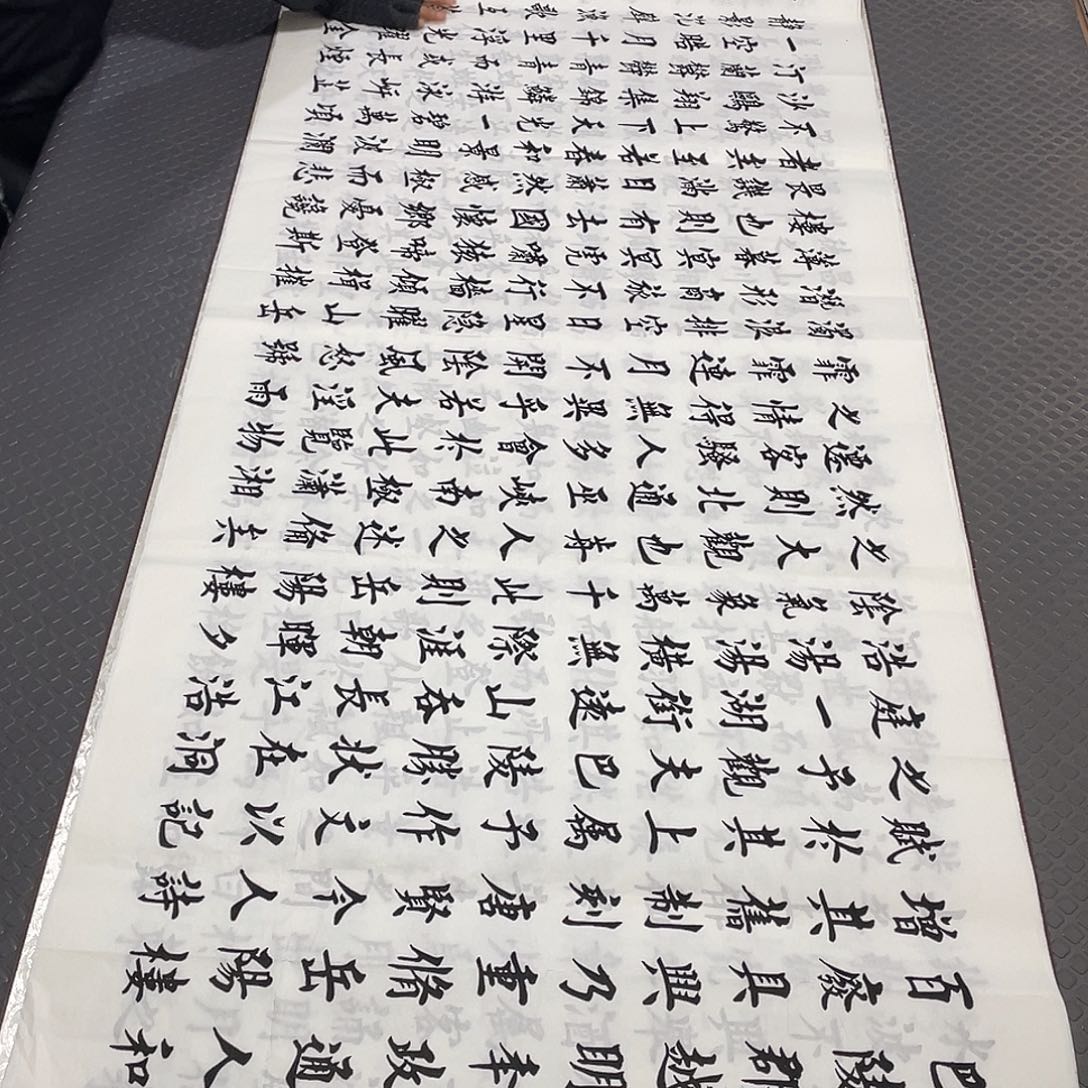 巴陵郡越明年政通人和
百廢具興乃重脩岳陽樓
增其舊制刻唐賢今人詩
賦於其上屬予作文以記
之予觀夫巴陵勝狀在洞
庭一湖銜遠山吞長江浩
浩湯湯橫無際涯朝暉夕
陰氣象萬千此則岳陽樓
之大觀也前人之述備矣
然則北通巫峽南極瀟湘
遷客騷人多會於此覽物
之情得無異乎若夫淫雨
霏霏連月不開陰風怒號
濁浪排空日星隱曜山岳
潛形商旅不行檣傾楫摧
薄暮冥冥虎嘯猿啼登斯
樓也則有去國懷鄉憂讒
畏譏滿目蕭然感極而悲
者矣至若春和景明波瀾
不驚上下天光一碧萬頃
沙鷗翔集錦鱗游泳岸芷
汀蘭鬱鬱青青而或長煙
一空皓月千里浮光躍金
靜影沉璧漁歌互